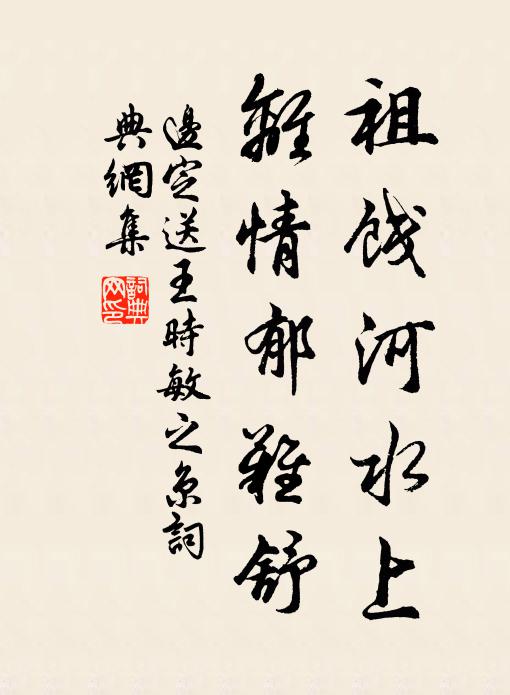 祖餞河水上
離情郁難舒
邊定送王時敏之京詞
典網集
詞典網印